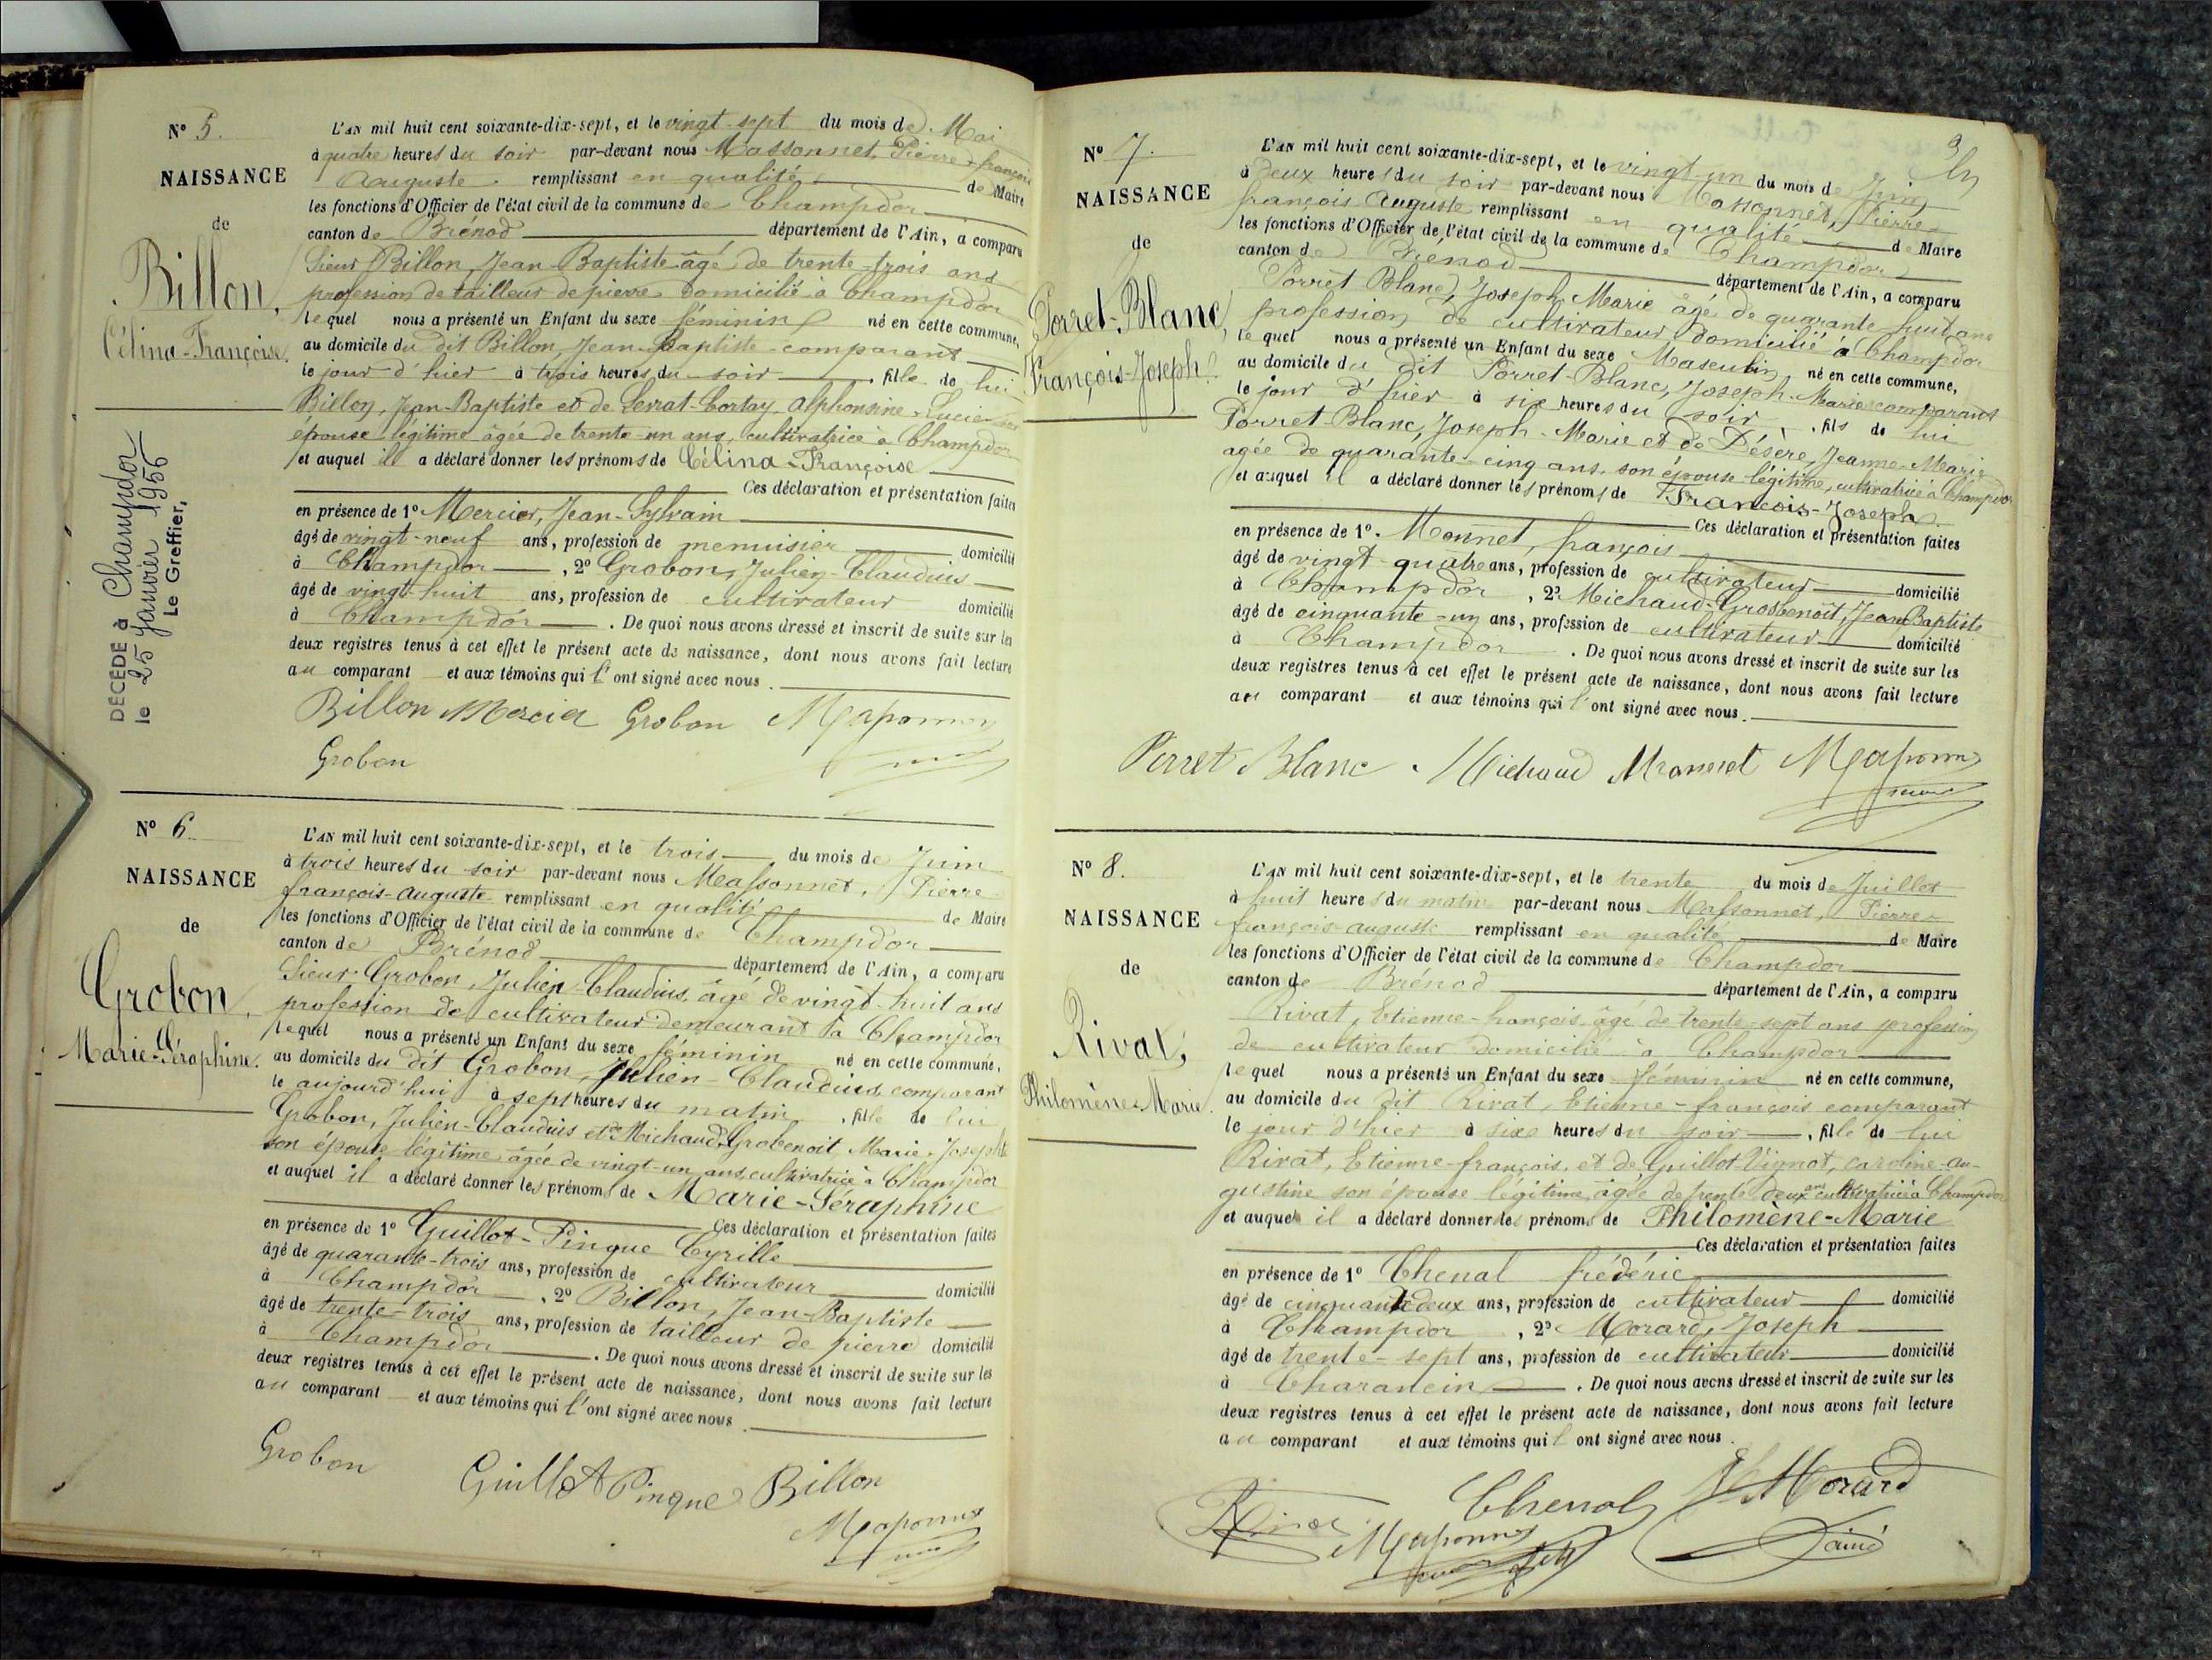 N° 5.
NAISSANCE
de
Billon,
Célina-Françoise.
DÉCÉDÉ à Champdor
le 25 Janvier 1956
Le Greffier,
L'AN mil huit cent soixante-dix-sept, et le vingt-sept du mois de Mai
à quatre heures du soir par-devant nous Massonnet, Pierre-françois
Auguste remplissant en qualité de Maire
les fonctions d'Officier de l'état civil de la commune de Champdor
canton de Brénod département de l'Ain, a comparu
Sieur Billon, Jean-Baptiste âgé de trente-trois ans
profession de tailleur de pierre domicilié à Champdor
lequel nous a présenté un Enfant du sexe féminin né en cette commune,
au domicile du dit Billon, Jean-Baptiste comparant
le jour d'hier à trois heures du soir, fille de lui
Billon, Jean-Baptiste et de Serrat-Cortay, Alphonsine-Lucie son
épouse légitime âgée de trente-un ans, cultivatrice à Champdor
et auquel il a déclaré donner les prénoms de Célina-Françoise
Ces déclaration et présentation faites
en présence de 1° Mercier, Jean-Sylvain
âgé de vingt-neuf ans, profession de menuisier domicilié
à Champdor, 2° Grobon, Julien-Claudius
âgé de vingt-huit ans, profession de cultivateur domicilié
à Champdor. De quoi nous avons dressé et inscrit de suite sur les
deux registres tenus à cet effet le présent acte de naissance, dont nous avons fait lecture
au comparant et aux témoins qui l'ont signé avec nous.
Billon Mercier Grobon Massonnet
Grobon
N° 6.
NAISSANCE
de
Grobon,
Marie-Séraphine.
L'AN mil huit cent soixante-dix-sept, et le trois du mois de Juin
à trois heures du soir par-devant nous Massonnet, Pierre-
françois-auguste remplissant en qualité de Maire
les fonctions d'Officier de l'état civil de la commune de Champdor
canton de Brénod département de l'Ain, a comparu
Sieur Grobon, Julien-Claudius, âgé de vingt-huit ans
profession de cultivateur demeurant à Champdor
lequel nous a présenté un Enfant du sexe féminin né en cette commune,
au domicile du dit Grobon, Julien-Claudius, comparant
le aujourd'hui à sept heures du matin, fille de lui
Grobon, Julien-Claudius et de Michaud-Grobenoit Marie-Josephte
son épouse légitime âgée de vingt-un ans, cultivatrice à Champdor
et auquel il a déclaré donner les prénoms de Marie-Séraphine
Ces déclaration et présentation faites
en présence de 1° Guillot-Pingue Cyrille
âgé de quarante-trois ans, profession de cultivateur domicilié
à Champdor, 2° Billon, Jean-Baptiste
âgé de trente-trois ans, profession de tailleur de pierre domicilié
à Champdor. De quoi nous avons dressé et inscrit de suite sur les
deux registres tenus à cet effet le présent acte de naissance, dont nous avons fait lecture
au comparant et aux témoins qui l'ont signé avec nous.
Grobon Guillot Pingue Billon
Massonnet
3
N° 7.
NAISSANCE
de
Porret-Blanc,
François-Joseph.
L'AN mil huit cent soixante-dix-sept, et le vingt-un du mois de Juin
à deux heures du soir par-devant nous Massonnet, Pierre-
françois Auguste remplissant en qualité de Maire
les fonctions d'Officier de l'état civil de la commune de Champdor
canton de Brénod département de l'Ain, a comparu
Porret Blanc, Joseph Marie âgé de quarante-huit ans
profession de cultivateur domicilié à Champdor
lequel nous a présenté un Enfant du sexe Masculin né en cette commune,
au domicile du dit Porret-Blanc, Joseph-Marie comparant
le jour d'hier à six heures du soir, fils de lui
Porret-Blanc, Joseph-Marie et de Désère, Jeanne-Marie
agée de quarante-cinq ans, son épouse légitime, cultivatrice à Champdor
et auquel il a déclaré donner les prénoms de François-Joseph.
Ces déclaration et présentation faites
en présence de 1°. Monnet, françois
âgé de vingt-quatre ans, profession de cultivateur domicilié
à Champdor, 2° Michaud-Grosbenoît, Jean Baptiste
âgé de cinquante-un ans, profession de cultivateur domicilié
à Champdor. De quoi nous avons dressé et inscrit de suite sur les
deux registres tenus à cet effet le présent acte de naissance, dont nous avons fait lecture
au comparant et aux témoins qui l'ont signé avec nous.
Perret Blanc Michaud Monnet Massonnet
N° 8.
NAISSANCE
de
Rivat,
Philomène-Marie.
L'AN mil huit cent soixante-dix-sept, et le trente du mois de Juillet
à huit heures du matin par-devant nous Massonnet, Pierre-
françois-auguste remplissant en qualité de Maire
les fonctions d'Officier de l'état civil de la commune de Champdor
canton de Brénod département de l'Ain, a comparu
Rivat, Etienne-françois, âgé de trente-sept ans profession
de cultivateur domicilié à Champdor
lequel nous a présenté un Enfant du sexe féminin né en cette commune,
au domicile du dit Rivat, Etienne-françois comparant
le jour d'hier à six heures du soir, fille de lui
Rivat, Etienne-françois, et de Guillot-Vignot, Caroline-au-
gustine son épouse légitime, âgée de trente-deux ans cultivatrice à Champdor
et auquel il a déclaré donner les prénoms de Philomène-Marie
Ces déclaration et présentation faites
en présence de 1° Chenal frédéric
âgé de cinquante deux ans, profession de cultivateur domicilié
à Champdor, 2° Morard, Joseph
âgé de trente-sept ans, profession de cultivateur domicilié
à Charancin. De quoi nous avons dressé et inscrit de suite sur les
deux registres tenus à cet effet le présent acte de naissance, dont nous avons fait lecture
au comparant et aux témoins qui l'ont signé avec nous.
Rivat Chenal Morard
Massonnet ainé